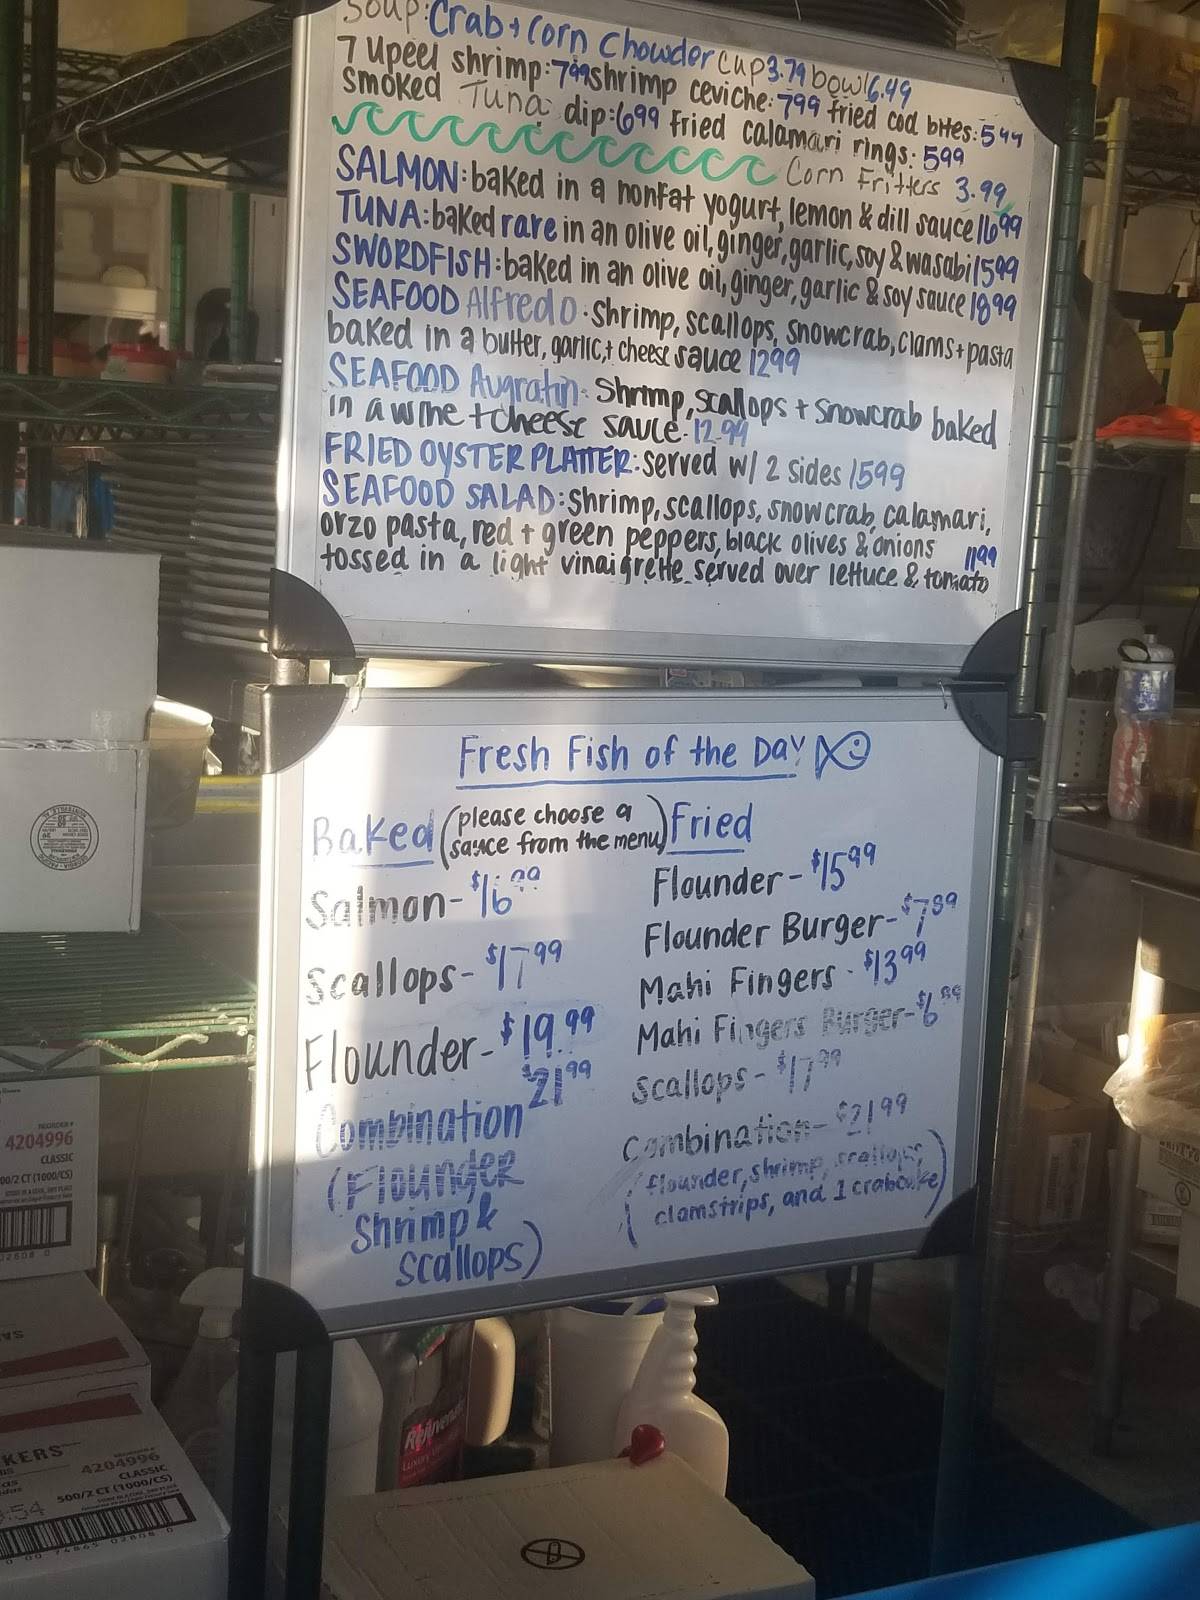 Soup: Crab + Corn Chowder cup 3.79 bowl 6.49
7 upeel shrimp: 7.99 shrimp ceviche: 799 fried cod bites: 599
smoked Tuna dip: 699 fried calamari rings: 599
Corn Fritters 3.99
SALMON: baked in a nonfat yogurt, lemon & dill sauce 1699
TUNA: baked rare in an olive oil, ginger, garlic, soy & wasabi 1599
SWORDFISH: baked in an olive oil, ginger, garlic & soy sauce 1899
SEAFOOD Alfredo: shrimp, scallops, snowcrab, clams + pasta
baked in a butter, garlic, + cheese sauce 1299
SEAFOOD Augratin: Shrimp, scallops + snowcrab baked
in a wine + cheese sauce. 12.99
FRIED OYSTER PLATTER: served w/ 2 sides 1599
SEAFOOD SALAD: shrimp, scallops, snowcrab, calamari,
orzo pasta, red + green peppers, black olives & onions 1199
tossed in a light vinaigrette served over lettuce & tomato
Fresh Fish of the Day
Baked (please choose a
sauce from the menu)
Salmon- $16.99
Scallops- $17 99
Flounder- $19.99
$21 99
Combination
(Flounder
Shrimp &
Scallops)
Fried
Flounder- $15 99
Flounder Burger- $7 99
Mahi Fingers - $13 99
Mahi Fingers Burger- $6 99
Scallops- $17 99
Combination- $21 99
(flounder, shrimp, scallops,
clamstrips, and 1 crabcake)
REORDER #
4204996
CLASSIC
00/2 CT (1000/CS)
KERS
4204996
CLASSIC
500/2 CT (1000/CS)
Rejuvenate
Luxury